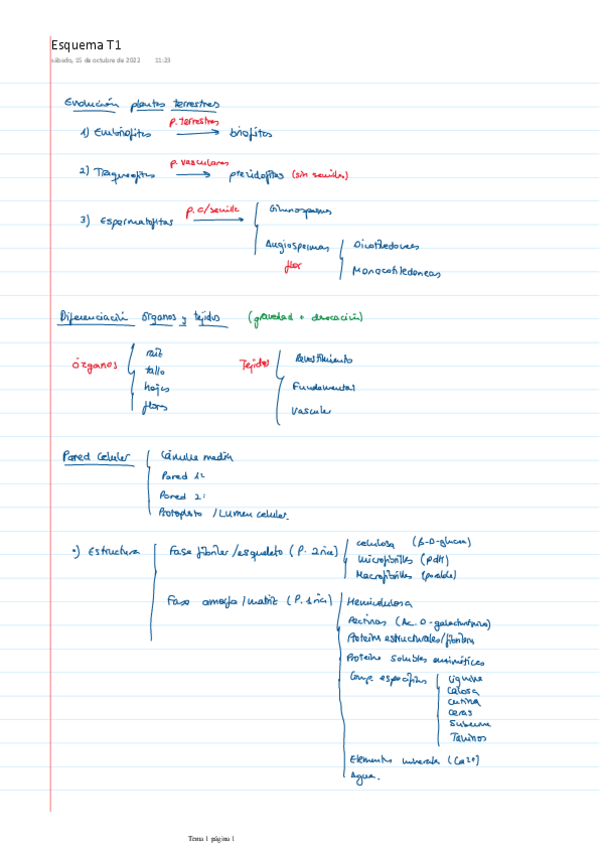 Esquema T1
sábado, 15 de octubre de 2022 11:23
Evolución plantas terrestres
1) Embriofitos p. terrestres briofitos
2) Traqueofitas p. vasculares pteridofitas (sin semilla)
3) Espermatofitas p. c/semilla Gimnospermas
Angiospermas Dicotiledoneas
flor Monocotiledoneas
Diferenciación órganos y tejidos (gravedad + desecación)
órganos raíz Tejidos Revestimiento
tallo
hojas Fundamental
flores Vascular
Pared Celular Lámina media
Pared 1ª
Pared 2ª
Protoplasto / Lumen celular.
•) Estructura Fase fibrilar/esqueleto (P. 2ria) celulosa (β-D-glucosa)
Microfibrillas (pdM)
Macrofibrillas
Fase amorfa/matriz (P. 1ria) Hemicelulosa
Pectinas (Ac. D-galacturónico)
Proteína estructurales/fibrilar
Proteína solubles enzimáticos
específicos lignina
calosa
cutina
ceras
Suberina
Taninos
Elementos minerales (Ca2+)
Agua.
Tema 1 página 1